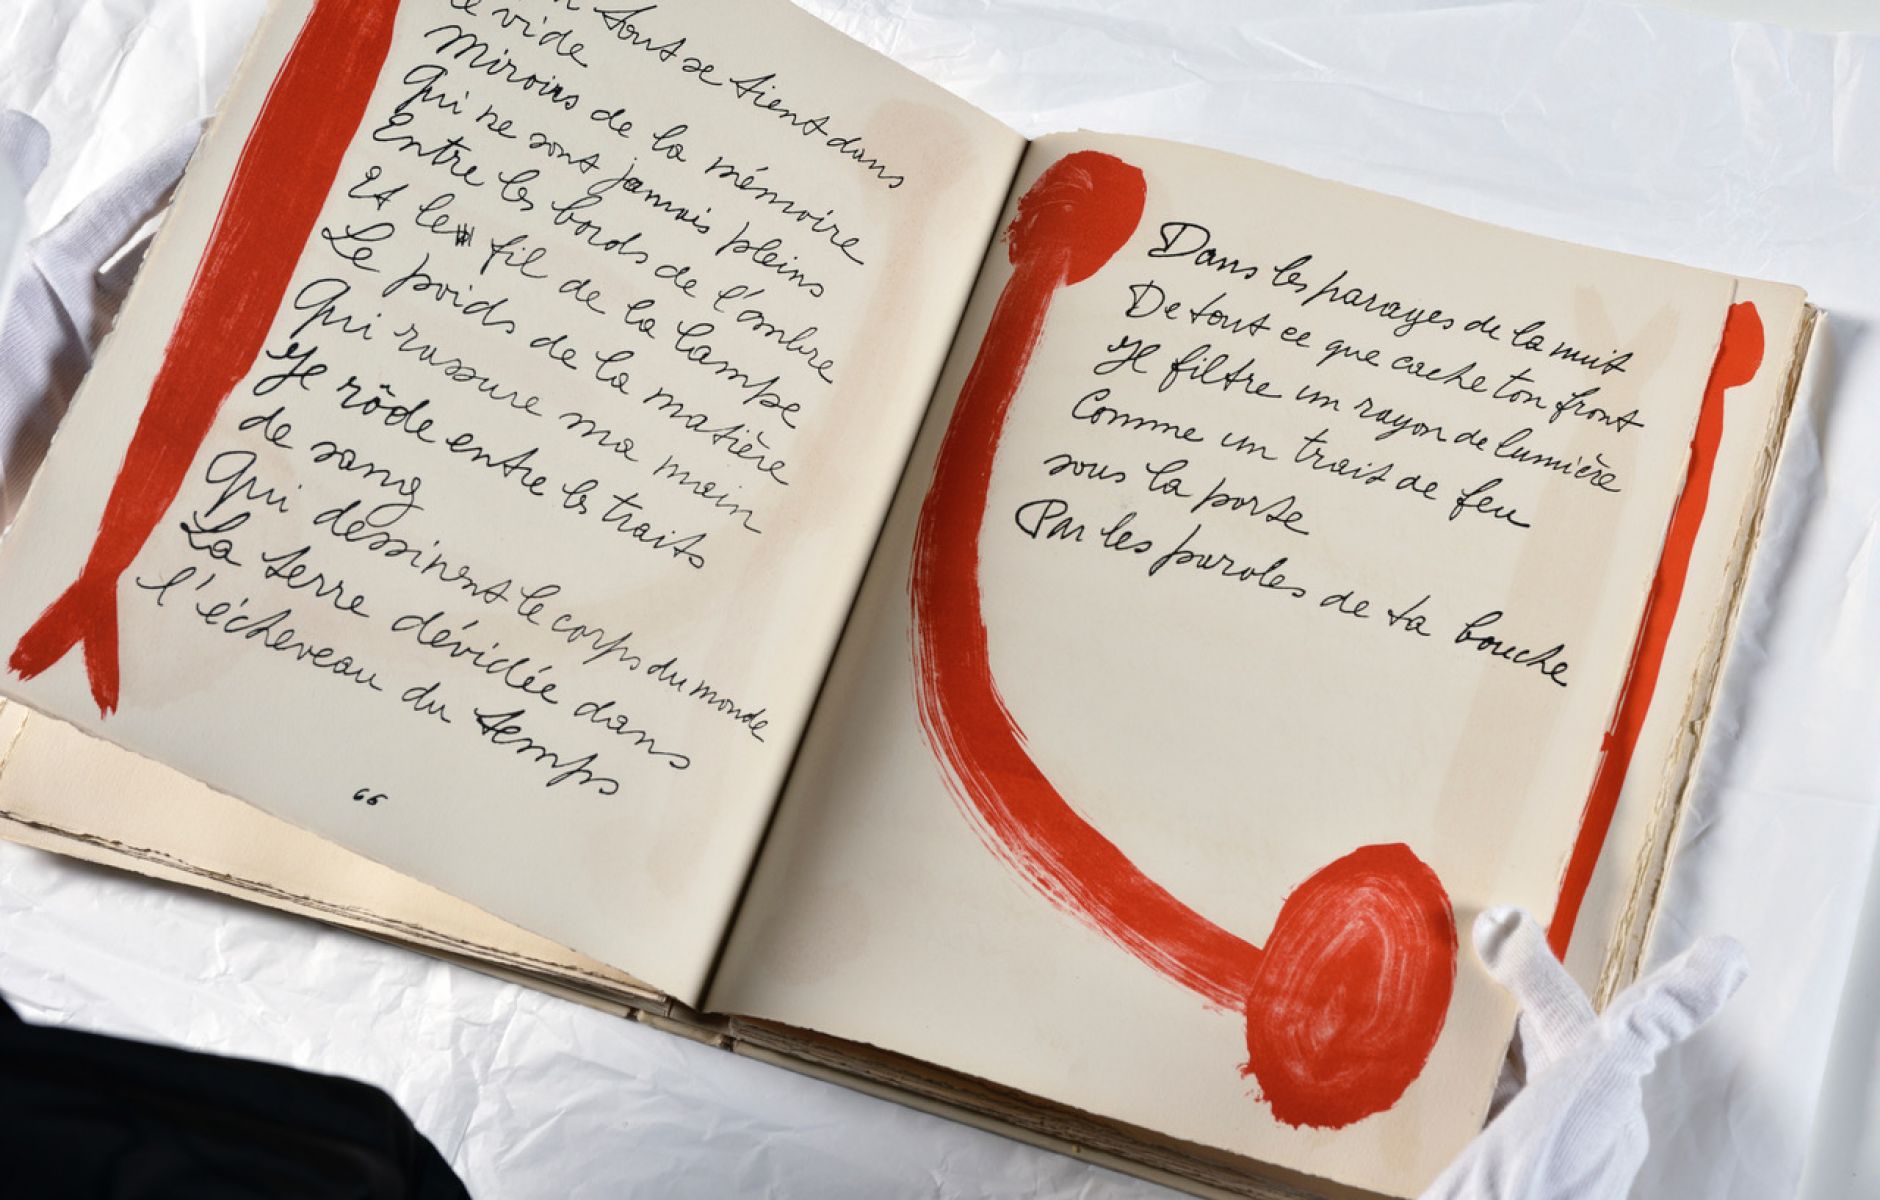 tout se tient dans
le vide
Miroirs de la mémoire
Qui ne sont jamais pleins
Entre les bords de l'ombre
Et le fil de la lampe
Le poids de la matière
Qui rassure ma main
Je rôde entre les traits
de sang
Qui dessinent le corps du monde
La terre dévidée dans
l'écheveau du temps
66
Dans les parages de la nuit
De tout ce que cache ton front
Il filtre un rayon de lumière
Comme un trait de feu
sous la porte
Par les paroles de ta bouche